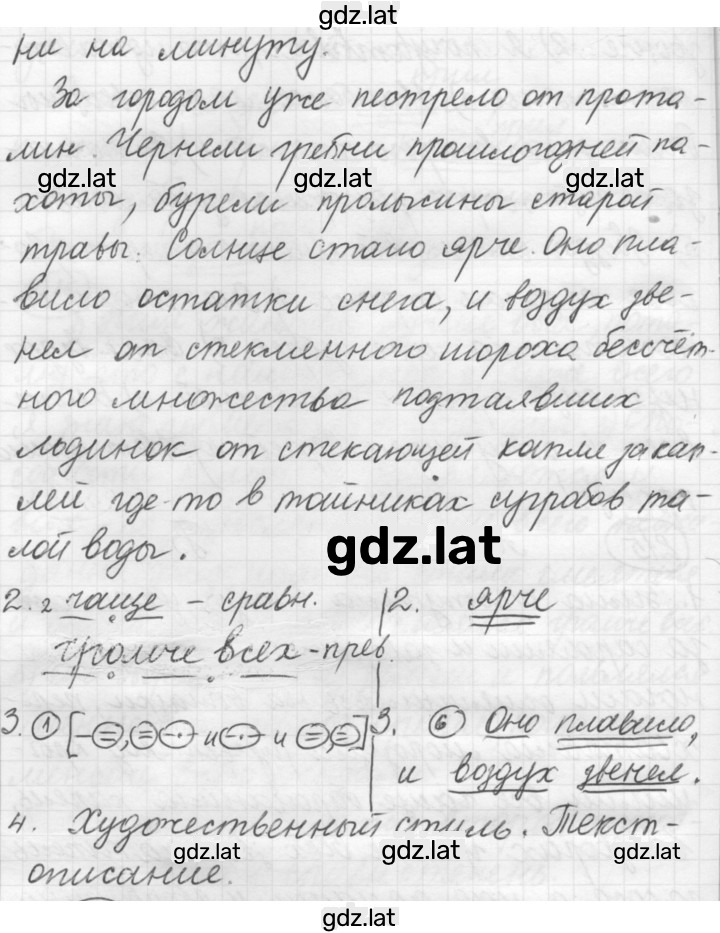 gdz.lat
ни на минуту.
За городом уже пестрело от прота-
лин. Чернели гребни прошлогодней па-
gdz.lat gdz.lat gdz.lat
хоты, бурели пролысины старой
травы. Солнце стало ярче. Оно пла-
вило остатки снега, и воздух зве-
нел от стеклянного шороха бессчёт-
ного множества подтаявших
льдинок от стекающей капля за кап-
лей где-то в тайниках сугробов та-
лой воды.
gdz.lat
2. 2 чаще - сравн. 2. ярче
громче всех - прев.
3. 1 [ , и и , ] 3. 6 Оно плавило,
и воздух звенел.
4. Художественный стиль. Текст-
gdz.lat gdz.lat gdz.lat
описание.
gdz.lat